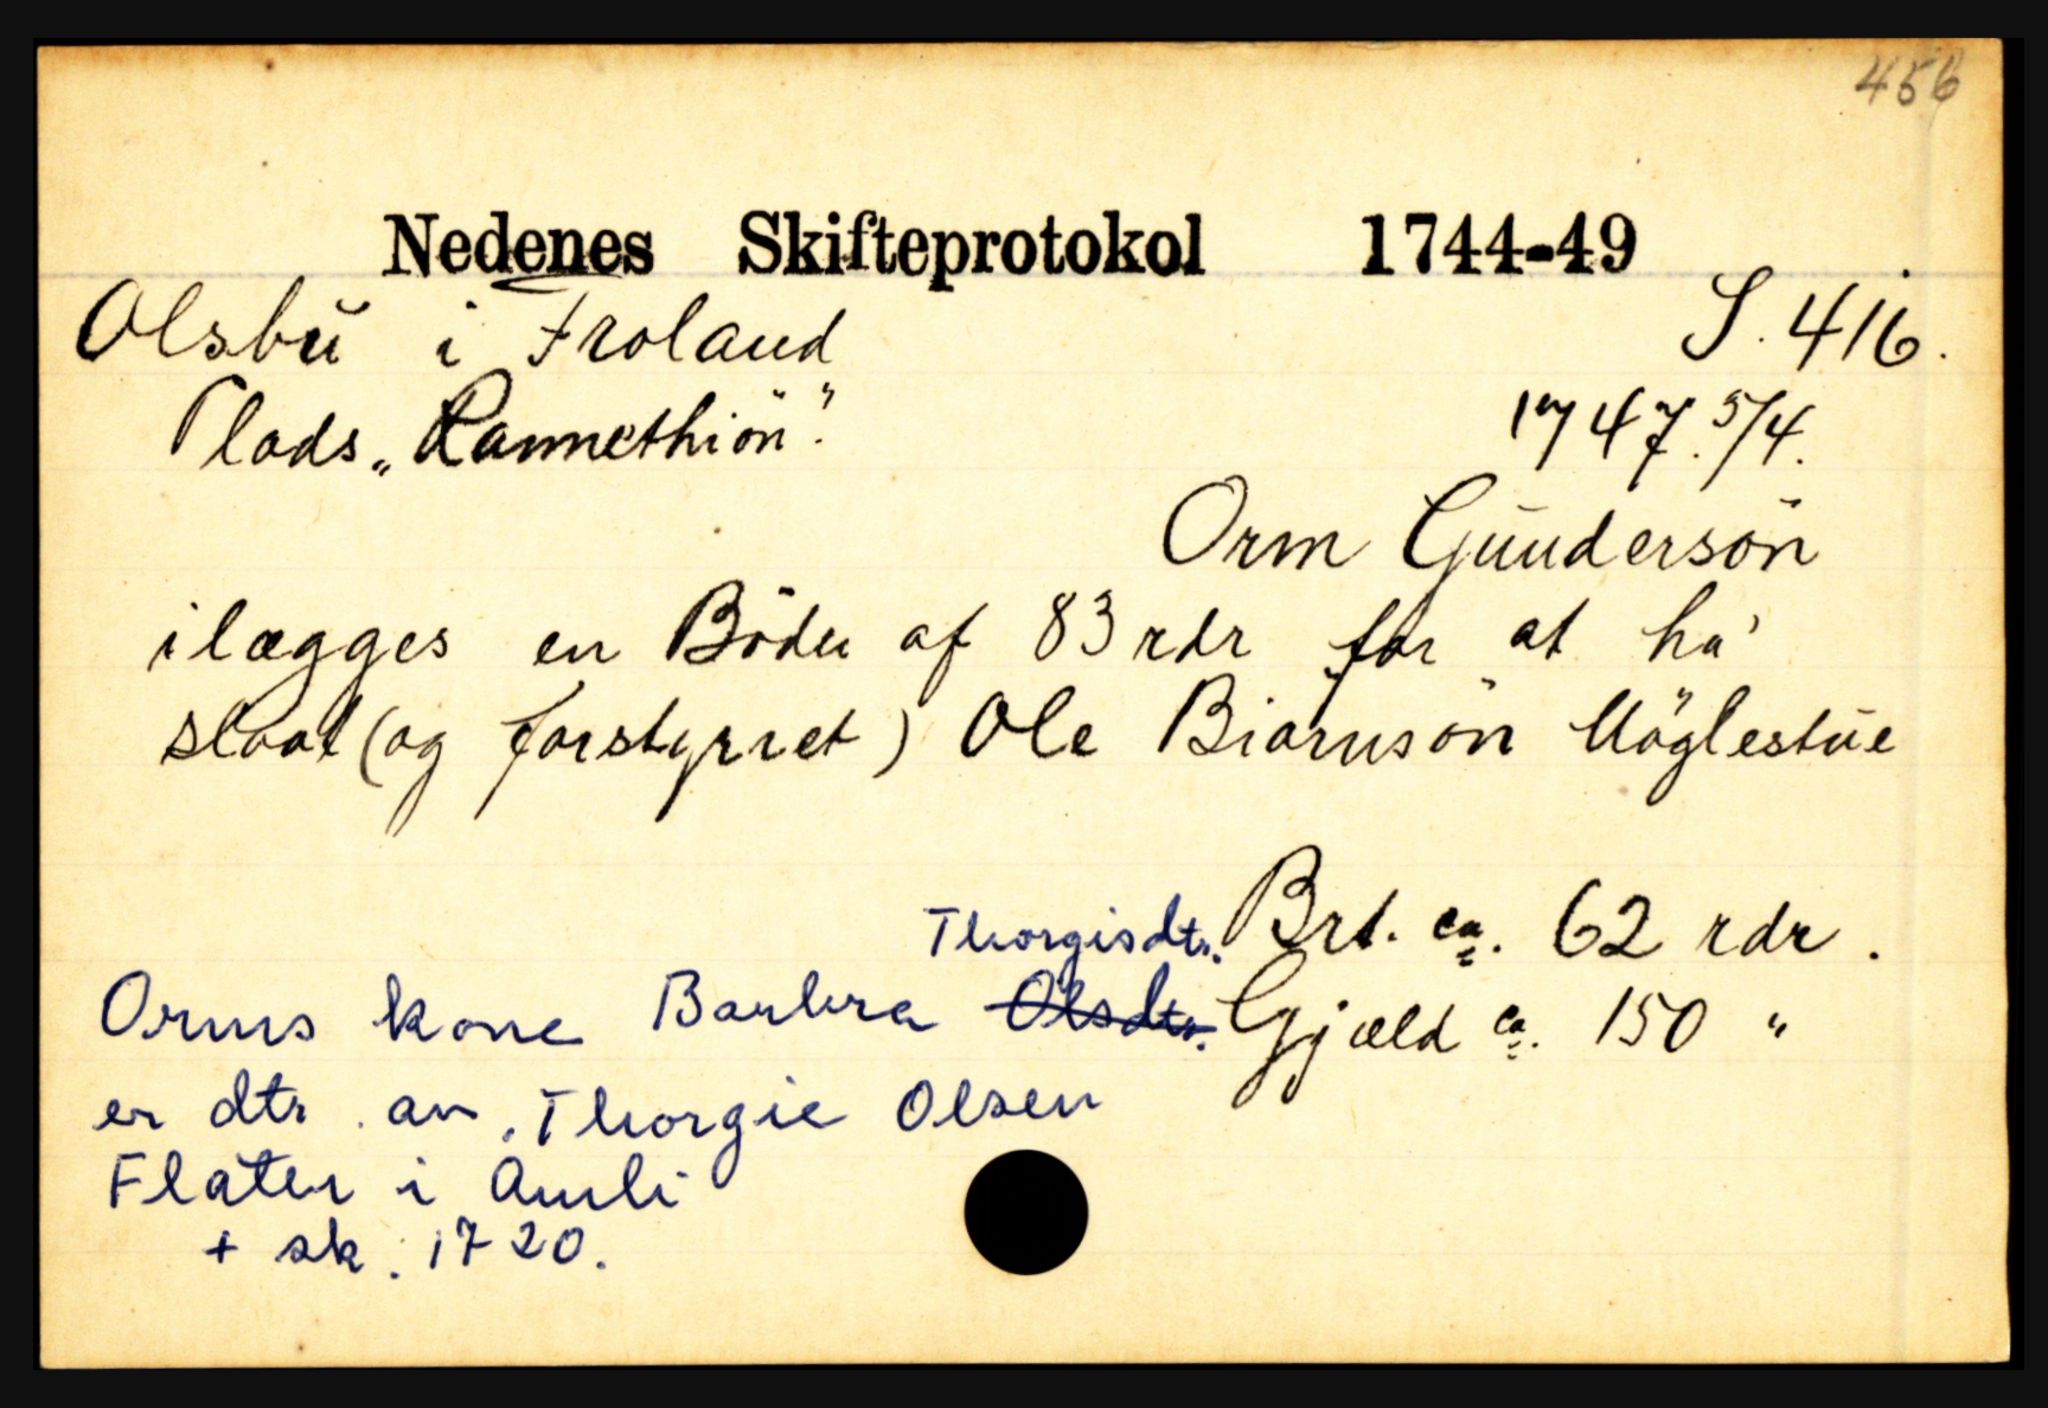 456
Nedenes Skifteprotokol 1744-49
Olsbu i Froland S. 416.
Plads „Rannethiön".
1747. 5/4.
Orm Gundersön
ilægges en Böder af 83 rdr for at ha
slaat (og forstyrret) Ole Biörnsön Möglestue
Brt. ca. 62 rdr.
Thorgisdtr.
Orms kone Barbra ~~Olsdtr.~~ Gjæld ca. 150 "
er dtr. av Thorgie Olsen
Flaten i Amli
+ sk. 1720.